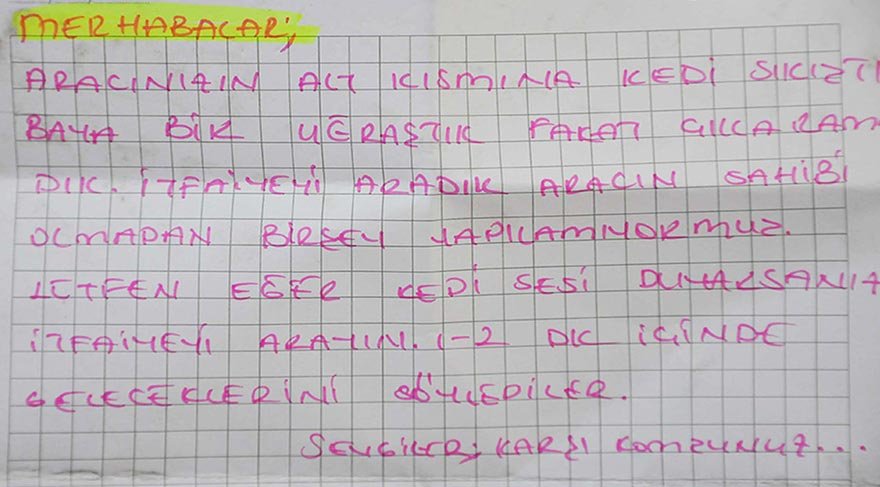 MERHABALAR;
ARACINIZIN ALT KISMINA KEDİ SIKIŞTI
BAYA BİR UĞRAŞTIK FAKAT ÇIKARAM
DIK. İTFAİYEYİ ARADIK ARACIN SAHİBİ
OLMADAN BİRŞEY YAPILAMIYORMUŞ.
LÜTFEN EĞER KEDİ SESİ DUYARSANIZ
İTFAİYEYİ ARAYIN. 1-2 DK İÇİNDE
GELECEKLERİNİ SÖYLEDİLER.
SEVGİLER; KARŞI KOMŞUNUZ...